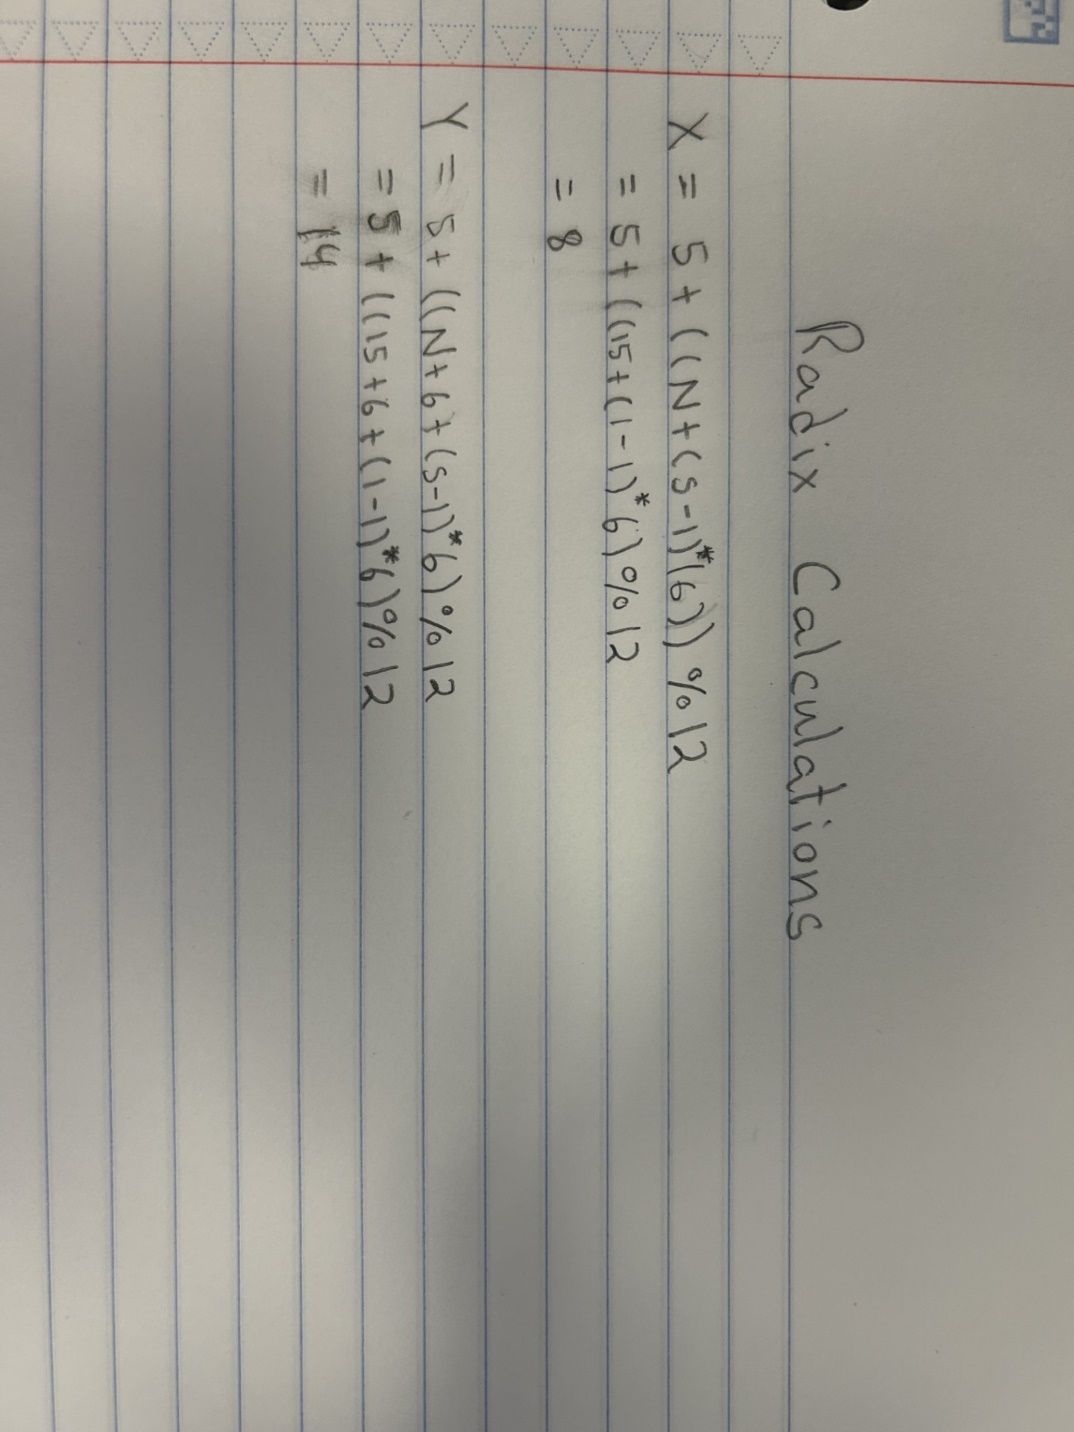 Radix Calculations
X = 5 + ((N+(S-1)*(6)) % 12
= 5 + ((15+(1-1)*6) % 12
= 8
Y = 5 + ((N+6+(S-1)*6) % 12
= 5 + ((15+6+(1-1)*6) % 12
= 14